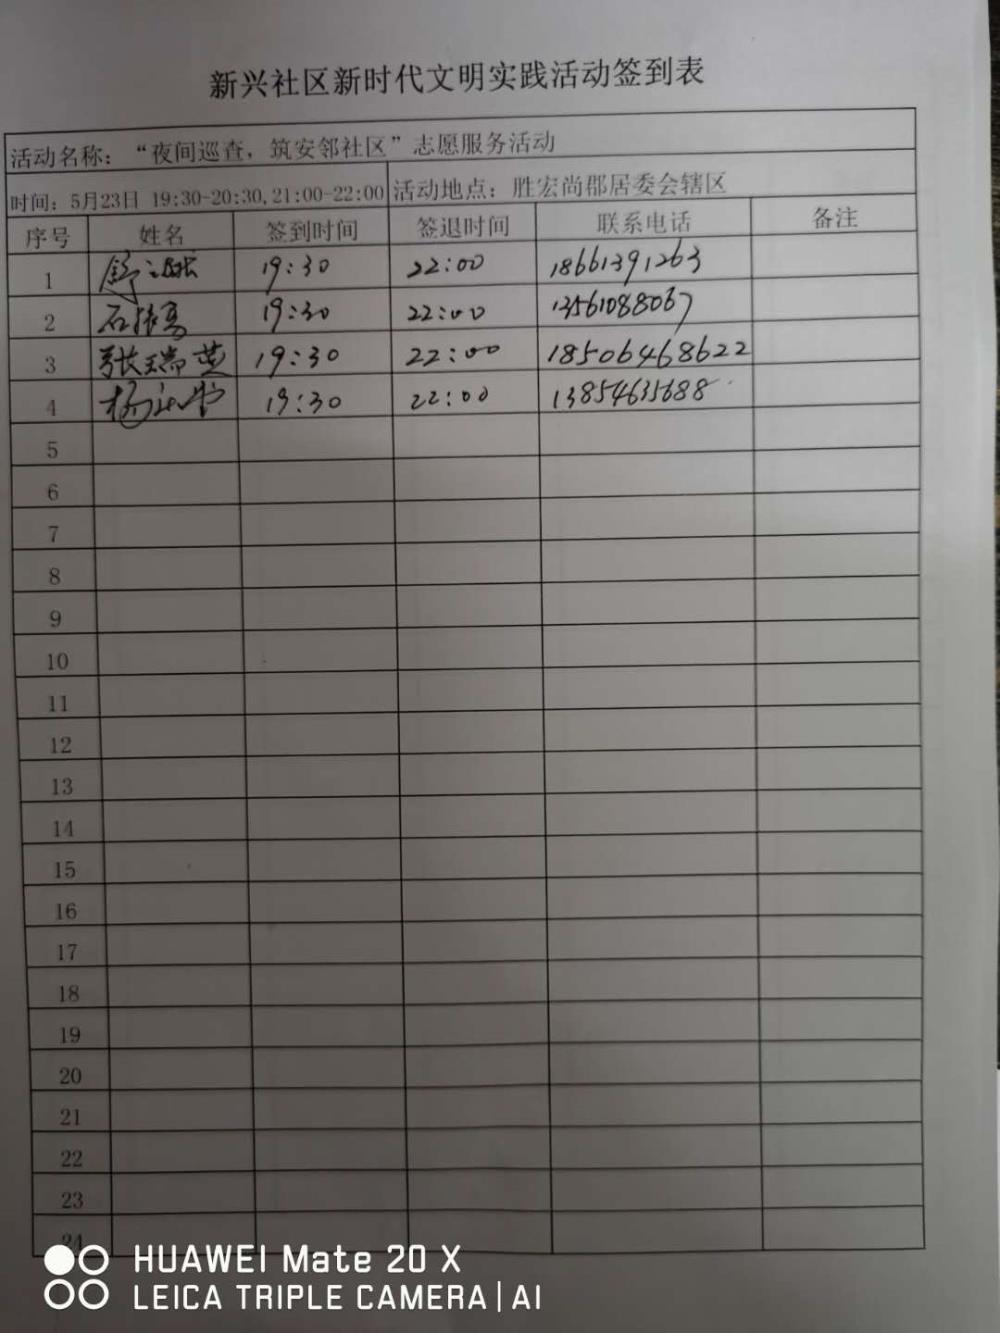 新兴社区新时代文明实践活动签到表
活动名称：“夜间巡查，筑安邻社区”志愿服务活动
时间：5月23日 19:30-20:30,21:00-22:00 活动地点：胜宏尚郡居委会辖区
序号 姓名 签到时间 签退时间 联系电话 备注
1 19:30 22:00 18661391263
2 19:30 22:00 13561088067
3 张瑞英 19:30 22:00 18506468622
4 19:30 22:00 13854635688
5
6
7
8
9
10
11
12
13
14
15
16
17
18
19
20
21
22
23
24
HUAWEI Mate 20 X
LEICA TRIPLE CAMERA | AI